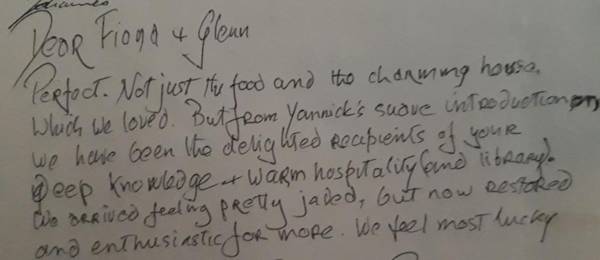 Dear Fiona + Glenn
Perfect. Not just the food and the charming house,
which we loved. But from Yannick's suave introduction on,
we have been the delighted recipients of your
deep knowledge + warm hospitality (and library).
We arrived feeling pretty jaded, but now restored
and enthusiastic for more. We feel most lucky